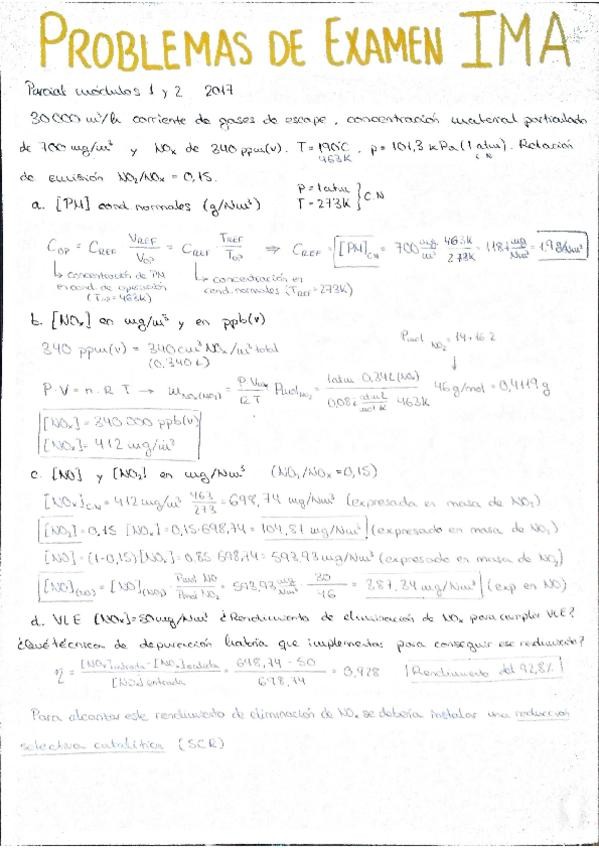 PROBLEMAS DE EXAMEN IMA
Parcial módulos 1 y 2 2017
30000 m³/h corriente de gases de escape, concentración material particulado
de 700 mg/m³ y NOx de 340 ppm(v). T=190ºC, p=101,3 kPa (1 atm). Relación
463K C.N
de emisión NO₂/NOx = 0,15.
P=1atm
T=273K } C.N
a. [PM] cond normales (g/Nm³)
C_OP = C_REF V_REF/V_OP = C_REF T_REF/T_OP ⇒ C_REF = [PM]_CN = 700 mg/m³ 463K/273K = 1187 mg/Nm³ = 1,19 g/Nm³
↳ concentración de PM
en cond. de operación
(T_OP=463K)
↳ concentración en
cond. normales (T_REF=273K)
b. [NOx] en mg/m³ y en ppb(v)
340 ppm(v) = 340cm³ NOx/m³ total
(0,340L)
Pmol NO₂ = 14+16·2
P·V=n·R·T → m NO₂(NOx) = P·V NOx/RT Pmol NO₂ = 1atm 0,34L(NOx)/0,082 atm·L/mol·K 463K 46g/mol = 0,4119g
[NOx]= 340.000 ppb(v)
[NOx]= 412 mg/m³
c. [NO] y [NO₂] en mg/Nm³ (NO₂/NOx=0,15)
[NOx]_CN = 412 mg/m³ 463/273 = 698,74 mg/Nm³ (expresada en masa de NO₂)
[NO₂]=0,15 [NOx]=0,15·698,74= 104,81 mg/Nm³ (expresado en masa de NO₂)
[NO]=(1-0,15)[NOx]=0,85·698,74= 593,93 mg/Nm³ (expresado en masa de NO₂)
[NO](NO) = [NO](NO₂) Pmol NO/Pmol NO₂ = 593,93 mg/Nm³ · 30/46 = 387,34 mg/Nm³ (exp en NO)
d. VLE [NOx]=50mg/Nm³ ¿Rendimiento de eliminación de NOx para cumplir VLE?
¿Qué técnica de depuración habría que implementar para conseguir ese rendimiento?
η = [NOx]entrada-[NOx]salida/[NOx]entrada = 698,74 - 50/698,74 = 0,928 Rendimiento del 92,8%
Para alcanzar este rendimiento de eliminación de NOx se debería instalar una reducción
selectiva catalítica (SCR)